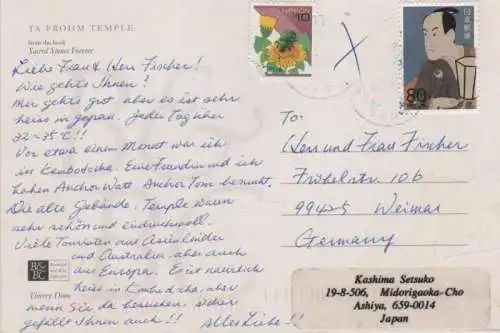 TA PROHM TEMPLE
from the book
Sacred Stones Forever
Liebe Frau & Herr Fischer!
Wie geht's Ihnen?
Mir geht's gut, aber es ist sehr
heiss in Japan. Jeden Tag über
32~35°C!!
Vor etwa einem Monat war ich
in Kambodscha. Eine Freundin und ich
haben Anchor Watt Anchor Tom besucht.
Die alte Gebäude, Temple waren
sehr schön und eindrucksvoll.
Viele Touristen aus Asienländer
und Australia, aber auch
aus Europa. Es ist natürlich
heiss in Kambodcha, aber
wenn Sie da besuchen, sicher
gefällt Ihnen auch!!
Alles Liebe!!
Thierry Diwo
NIPPON
10
日本郵便
80
To:
Herr und Frau Fischer
10b
99425 Weimar
Germany
Kashima Setsuko
19-8-506, Midorigaoka-Cho
Ashiya, 659-0014
Japan